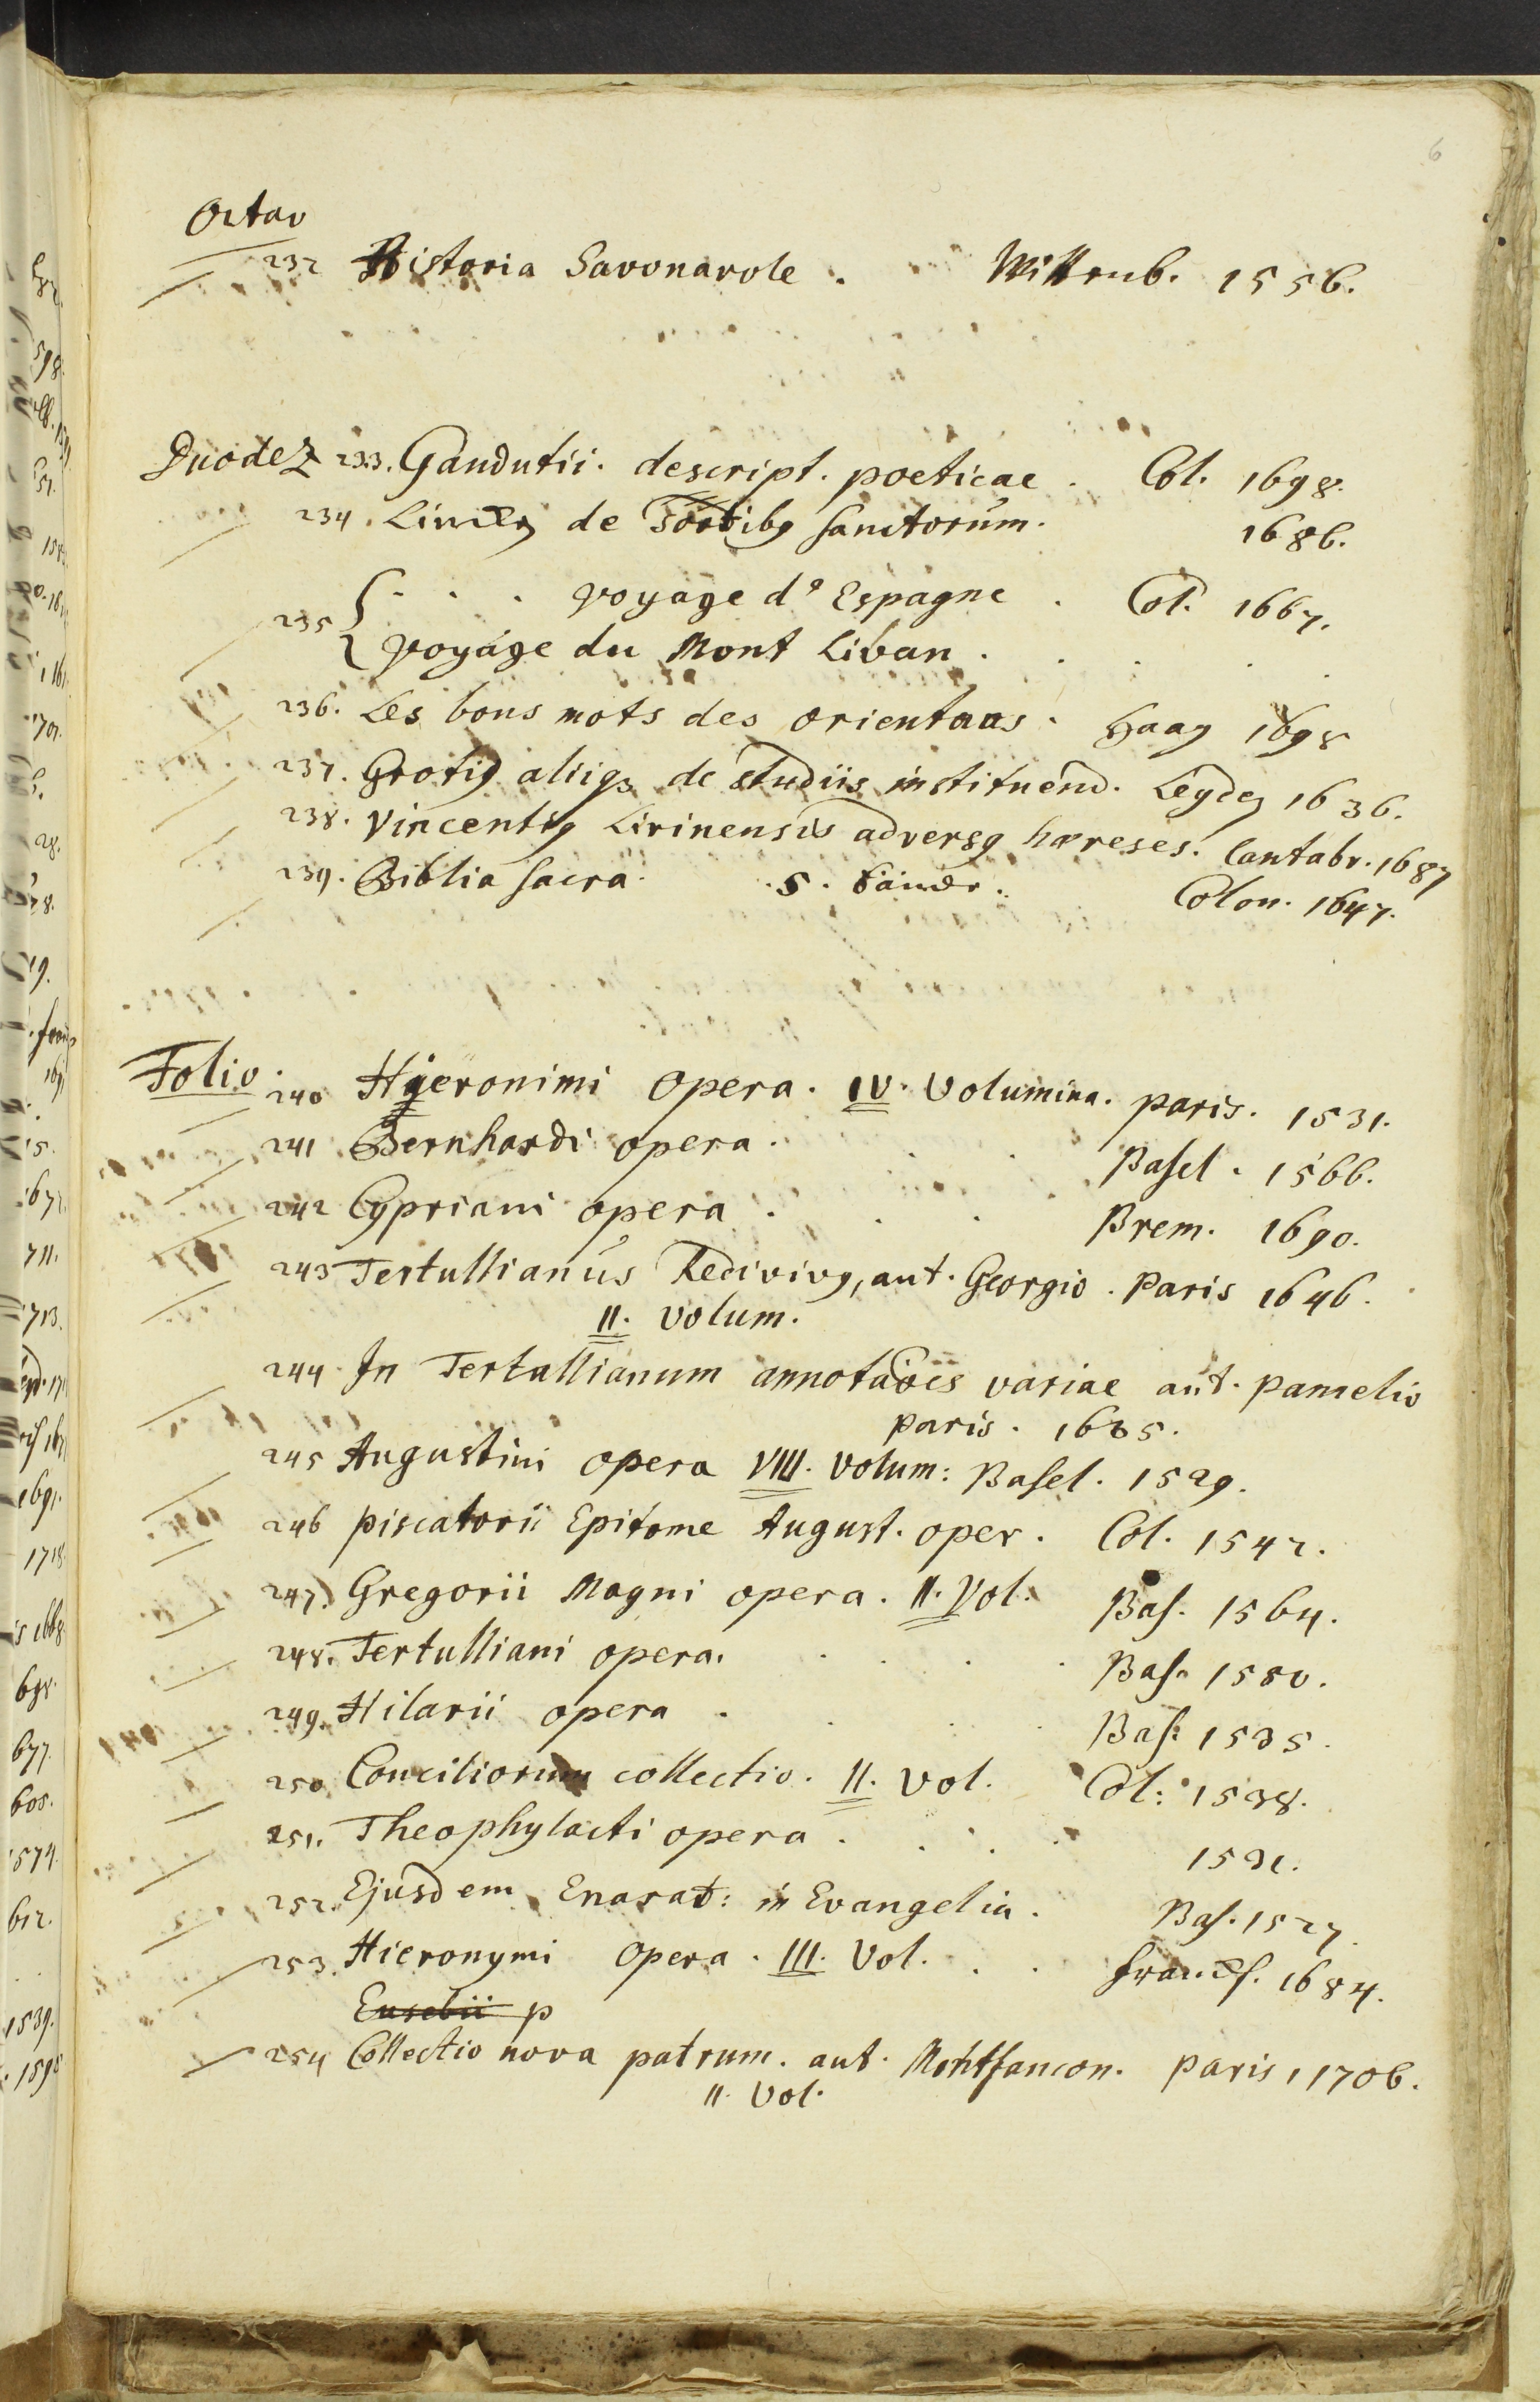 6
Octav
232 Historia Savonarole . Wittenb. 1556.
Duodez 233. Gandutii. descript. poeticae . Col. 1698.
234. de Sortibg Sanctorum. 1686.
235 { . . . voyage d'Espagne . Col. 1667.
voyage du Mont Liban .
236. Les bons mots des orientaus. Haag 1698
237. Grotig aliigs de studiis instituend. Leyden 1636.
238. Vincentig Lirinensis adversg hæreses. Cantabr. 1687
239. Biblia Sacra. 5. Bände. Colon. 1647.
Folio.
240 Hyeronimi Opera. IV. Volumina. paris. 1531.
241 Bernhardi opera. Basel. 1566.
242 Cypriani opera . Brem. 1690.
243 Tertullianus Redivivg, aut. Georgio. Paris 1646.
II. volum.
244. In Tertullianum annotaões variae aut. pamelio
paris. 1635.
245 Augustini opera VIII. volum: Basel. 1529.
246 piscatorii Epitome August. oper. Col. 1542.
247. Gregorii Magni opera. II. Vol. Bas. 1564.
248. Tertulliani opera. Bas. 1550.
249. Hilarii opera . Bas. 1535.
250 Conciliorum collectio. II. vol. Col: 1538.
251. Theophylacti opera . 1531.
252. Ejusdem Enarat: in Evangelia. Bas. 1527.
253. Hieronymi Opera. III. Vol. . . Francf. 1684.
Eusebii p
254 Collectio nova patrum. aut. Montfaucon. paris, 1706.
II. Vol.